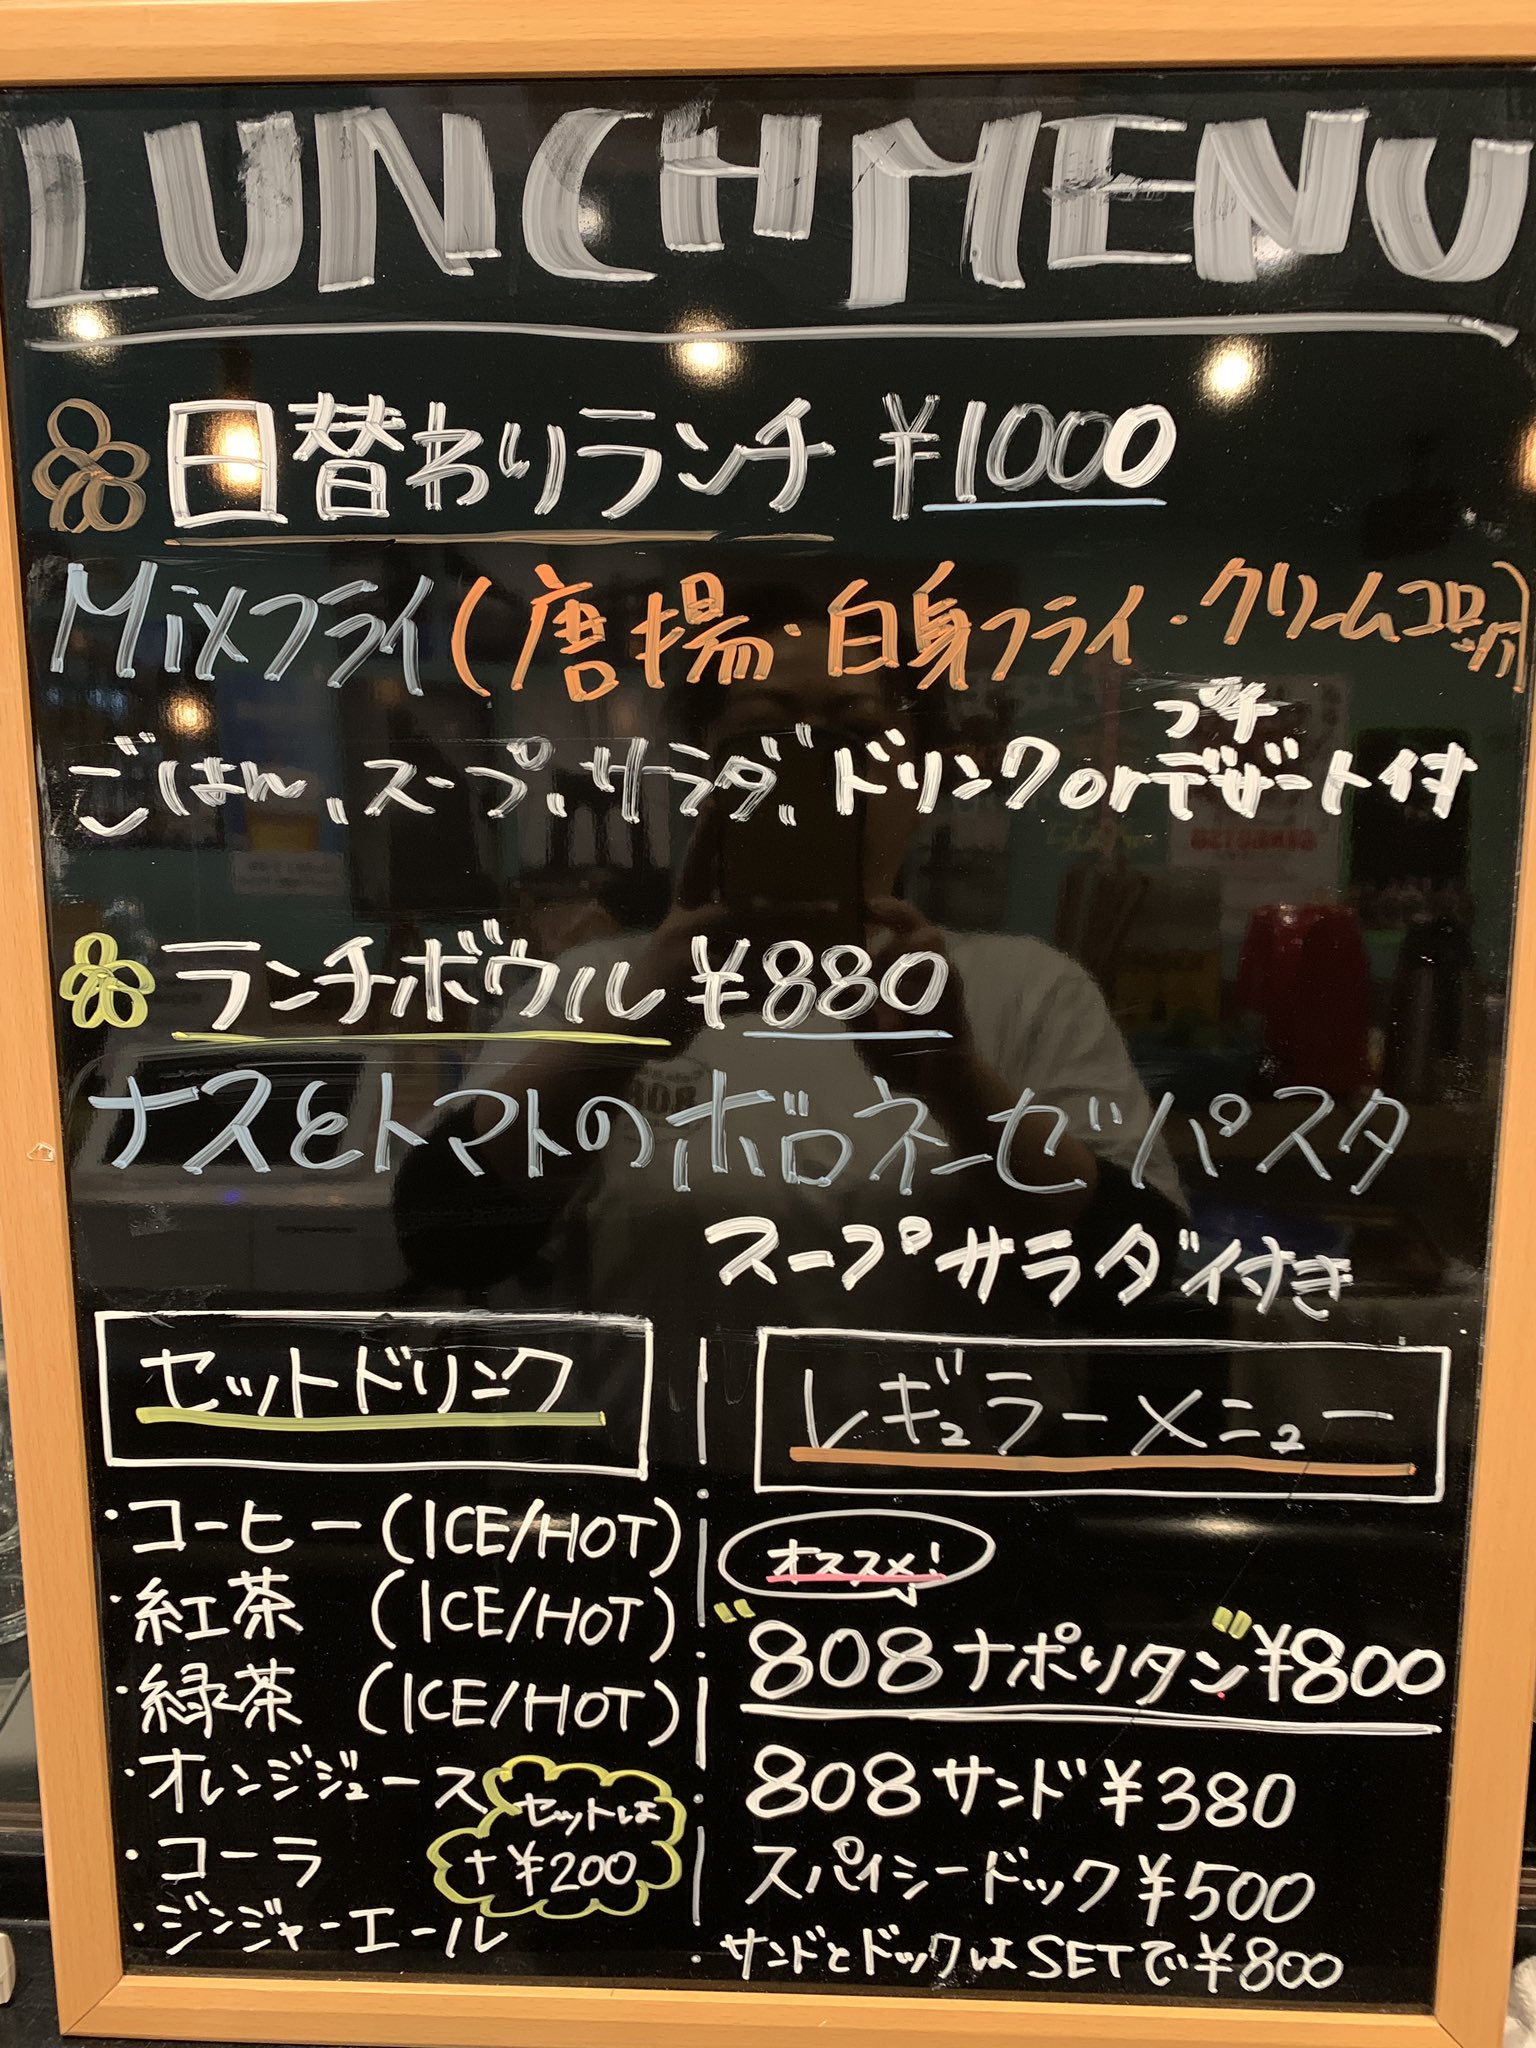 LUNCH MENU
日替わりランチ ¥1000
Mixフライ(唐揚・白身フライ・クリームコロッケ)
プチ
ごはん、スープ、サラダ、ドリンクorデザート付
ランチボウル ¥880
ナスとトマトのボロネーゼパスタ
スープサラダ付き
セットドリンク
・コーヒー(ICE/HOT)
・紅茶 (ICE/HOT)
・緑茶 (ICE/HOT)
・オレンジジュース
・コーラ
・ジンジャーエール
セットは
+¥200
レギュラーメニュー
オススメ!
"808ナポリタン"¥800
808サンド¥380
スパイシードック¥500
・サンドとドックはSETで¥800